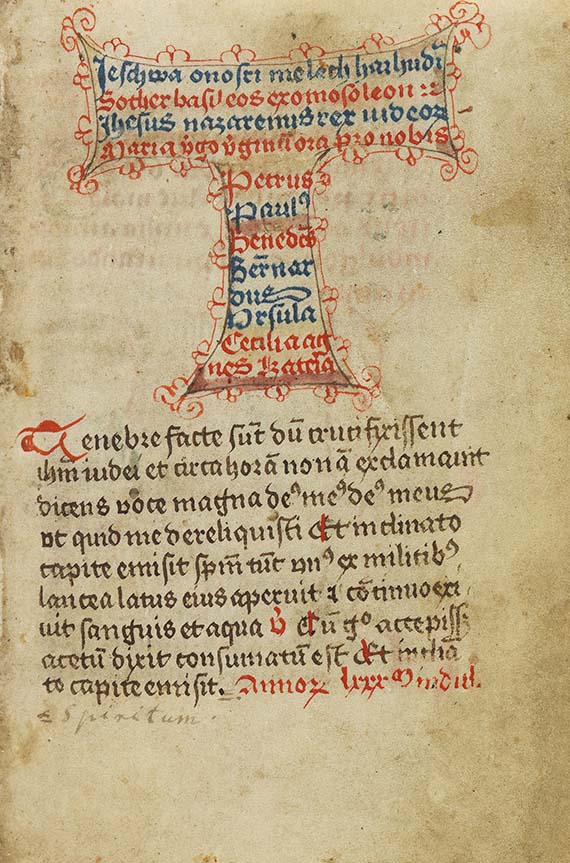 Jeschwa onosri melech haihudī
Sother basileos exomosoleon
Jhesus nazarenus rex iudeoꝝ
Maria v̄go v̄ginū ora pro nobis
Petrus
Paulꝰ
Benedc̄s
Bern̄ar
dus
Ursula
Cecilia ag
nes kater̄a
Tenebre facte sūt dū crucifixissent
ihm̄ iudei et circa horā nonā exclamauit
dicens voce magna deꝰ meꝰ deꝰ meus
vt quid me dereliquisti Et inclinato
capite emisit sp̄m tūt vnꝰ ex militibꝰ
lancea latus eius aperuit ⁊ cōtinuo exi-
uit sanguis et aqua v̄ Cū gͦ accepiss
acetū dixit consumatū est Et inclīa
to capite emisit. Annoꝝ lxxx
Spiritum.